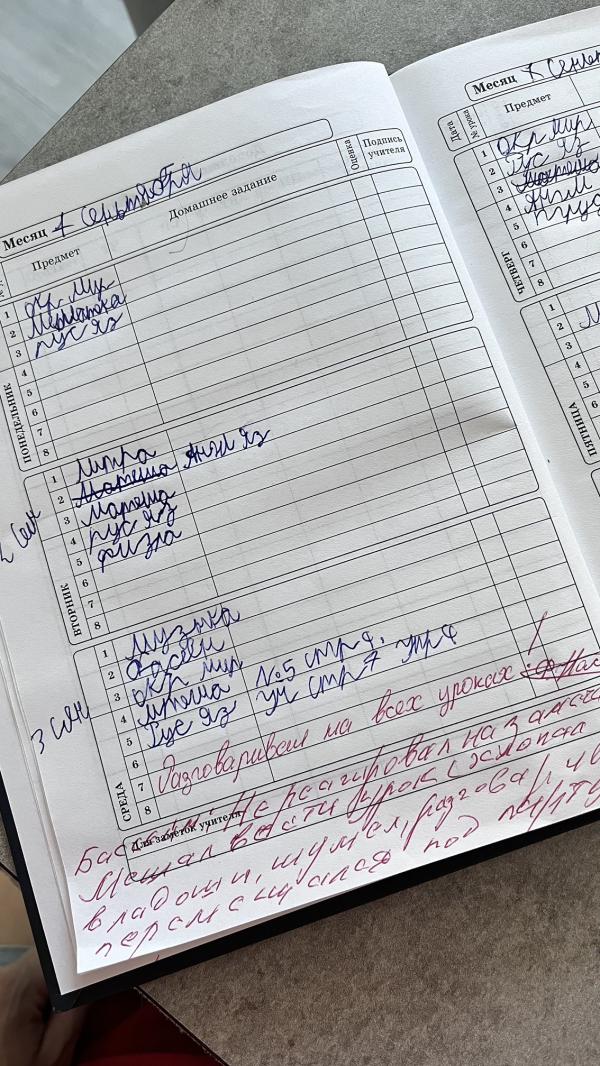 Месяц 1 Сентября
Предмет
Домашнее задание
Оценка
Подпись учителя
ПОНЕДЕЛЬНИК
1 Окр мир
2 Матошка
3 рус яз
4
5
6
7
8
2 сен
ВТОРНИК
1 литра
2 Матеша Англ Яз
3 матеша
4 рус яз
5 физра
6
7
8
3 сен
СРЕДА
1 Музыка
2 Басейн
3 окр мир
4 мтеша №5 стр 8,
5 Рус яз уч стр 7 упр 4
6
7 Разговаривал на всех уроках!
8
Для заметок учителя
Не реагировал на
Мешал вести урок (хлопал
в ладоши, шумел,
перемещался под
Месяц
Дата
№ урока
Предмет
ЧЕТВЕРГ
1 окр мир
2 Рус яз
3
4 Англ
5 труд
6
7
8
ПЯТНИЦА
1
2
3
4
5
6
7
8